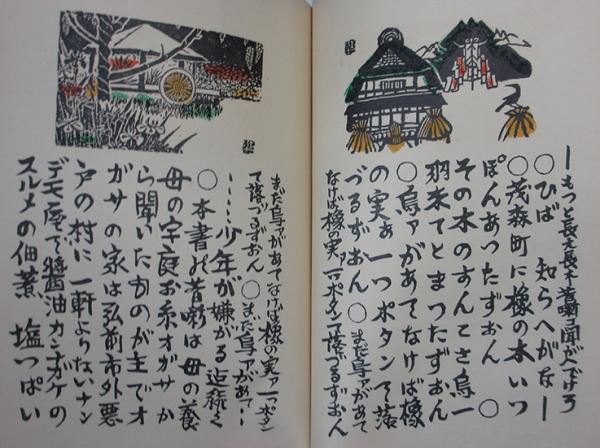 ―もっと長え長え昔噺コ聞がへでけろ
○ひば 知らへがなー
○茂森町に橡の木いつ
ぽんあったずおん ○
その木のすんこさ烏一
羽来てとまったずおん
○烏ァがあてなけば橡
の実ァ一つポタンて落
づるずおん○まだ烏ァがあて
なけば橡の実ァ一つポタンて落づるずおん
まだ烏ァがあてなけば橡の実ァ一つポタン
て落づるずおん○まだ烏ァがあて―
……少年が嫌がる迄続く
○本書の昔噺は母の養
母の宇庭お糸オガサか
ら聞いたものが主でオ
ガサの家は弘前市外悪
戸の村に一軒よりないナン
デモ屋で醬油カンナガケの
スルメの佃煮 塩っぱい